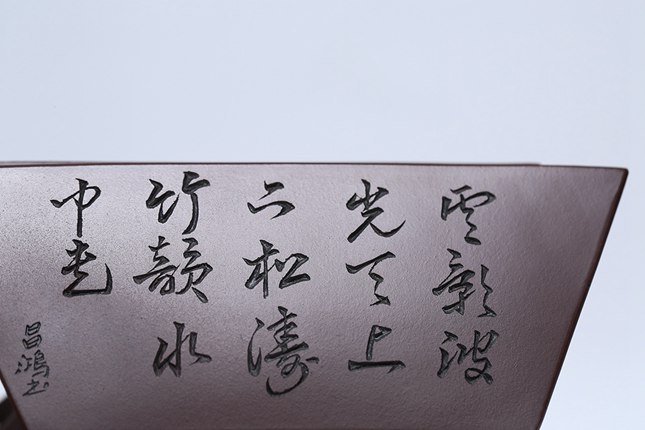 雲影波
光天上
下松濤
竹韻水
中央
昌鴻书